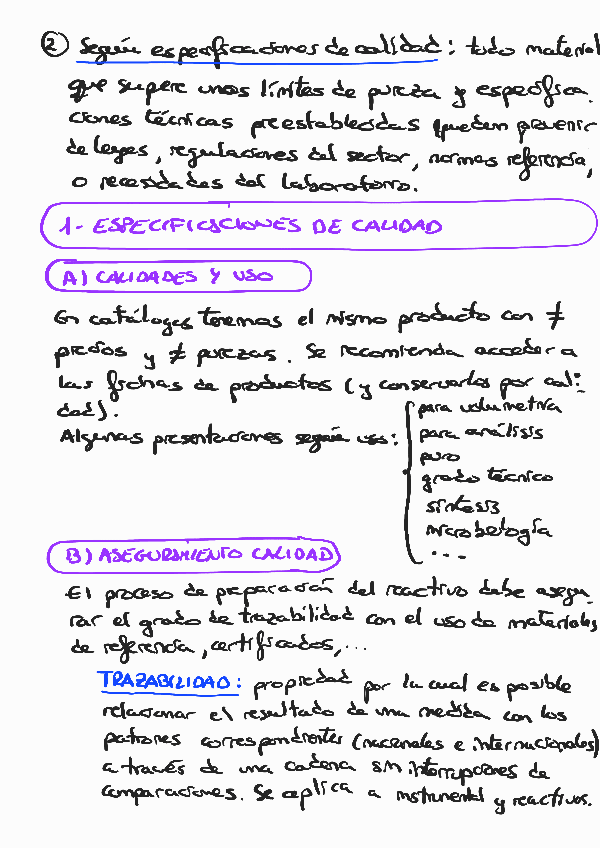 ② Según especificaciones de calidad: todo material
que supere unos límites de pureza y especifica-
ciones técnicas preestablecidas (pueden provenir
de leyes, regulaciones del sector, normas referencia,
o necesidades del laboratorio.
1- ESPECIFICACIONES DE CALIDAD
A) CALIDADES Y USO
En catálogos tenemos el mismo producto con ≠
precios y ≠ purezas. Se recomienda acceder a
las fichas de productos (y conservarlas por cali-
dad).
Algunas presentaciones según uso:
para volumetría
para análisis
puro
grado técnico
síntesis
microbiología
...
B) ASEGURAMIENTO CALIDAD
El proceso de preparación del reactivo debe asegu-
rar el grado de trazabilidad con el uso de materiales
de referencia, certificados,...
TRAZABILIDAD: propiedad por la cual es posible
relacionar el resultado de una medida con los
patrones correspondientes (nacionales e internacionales)
a través de una cadena sin interrupciones de
comparaciones. Se aplica a instrumental y reactivos.